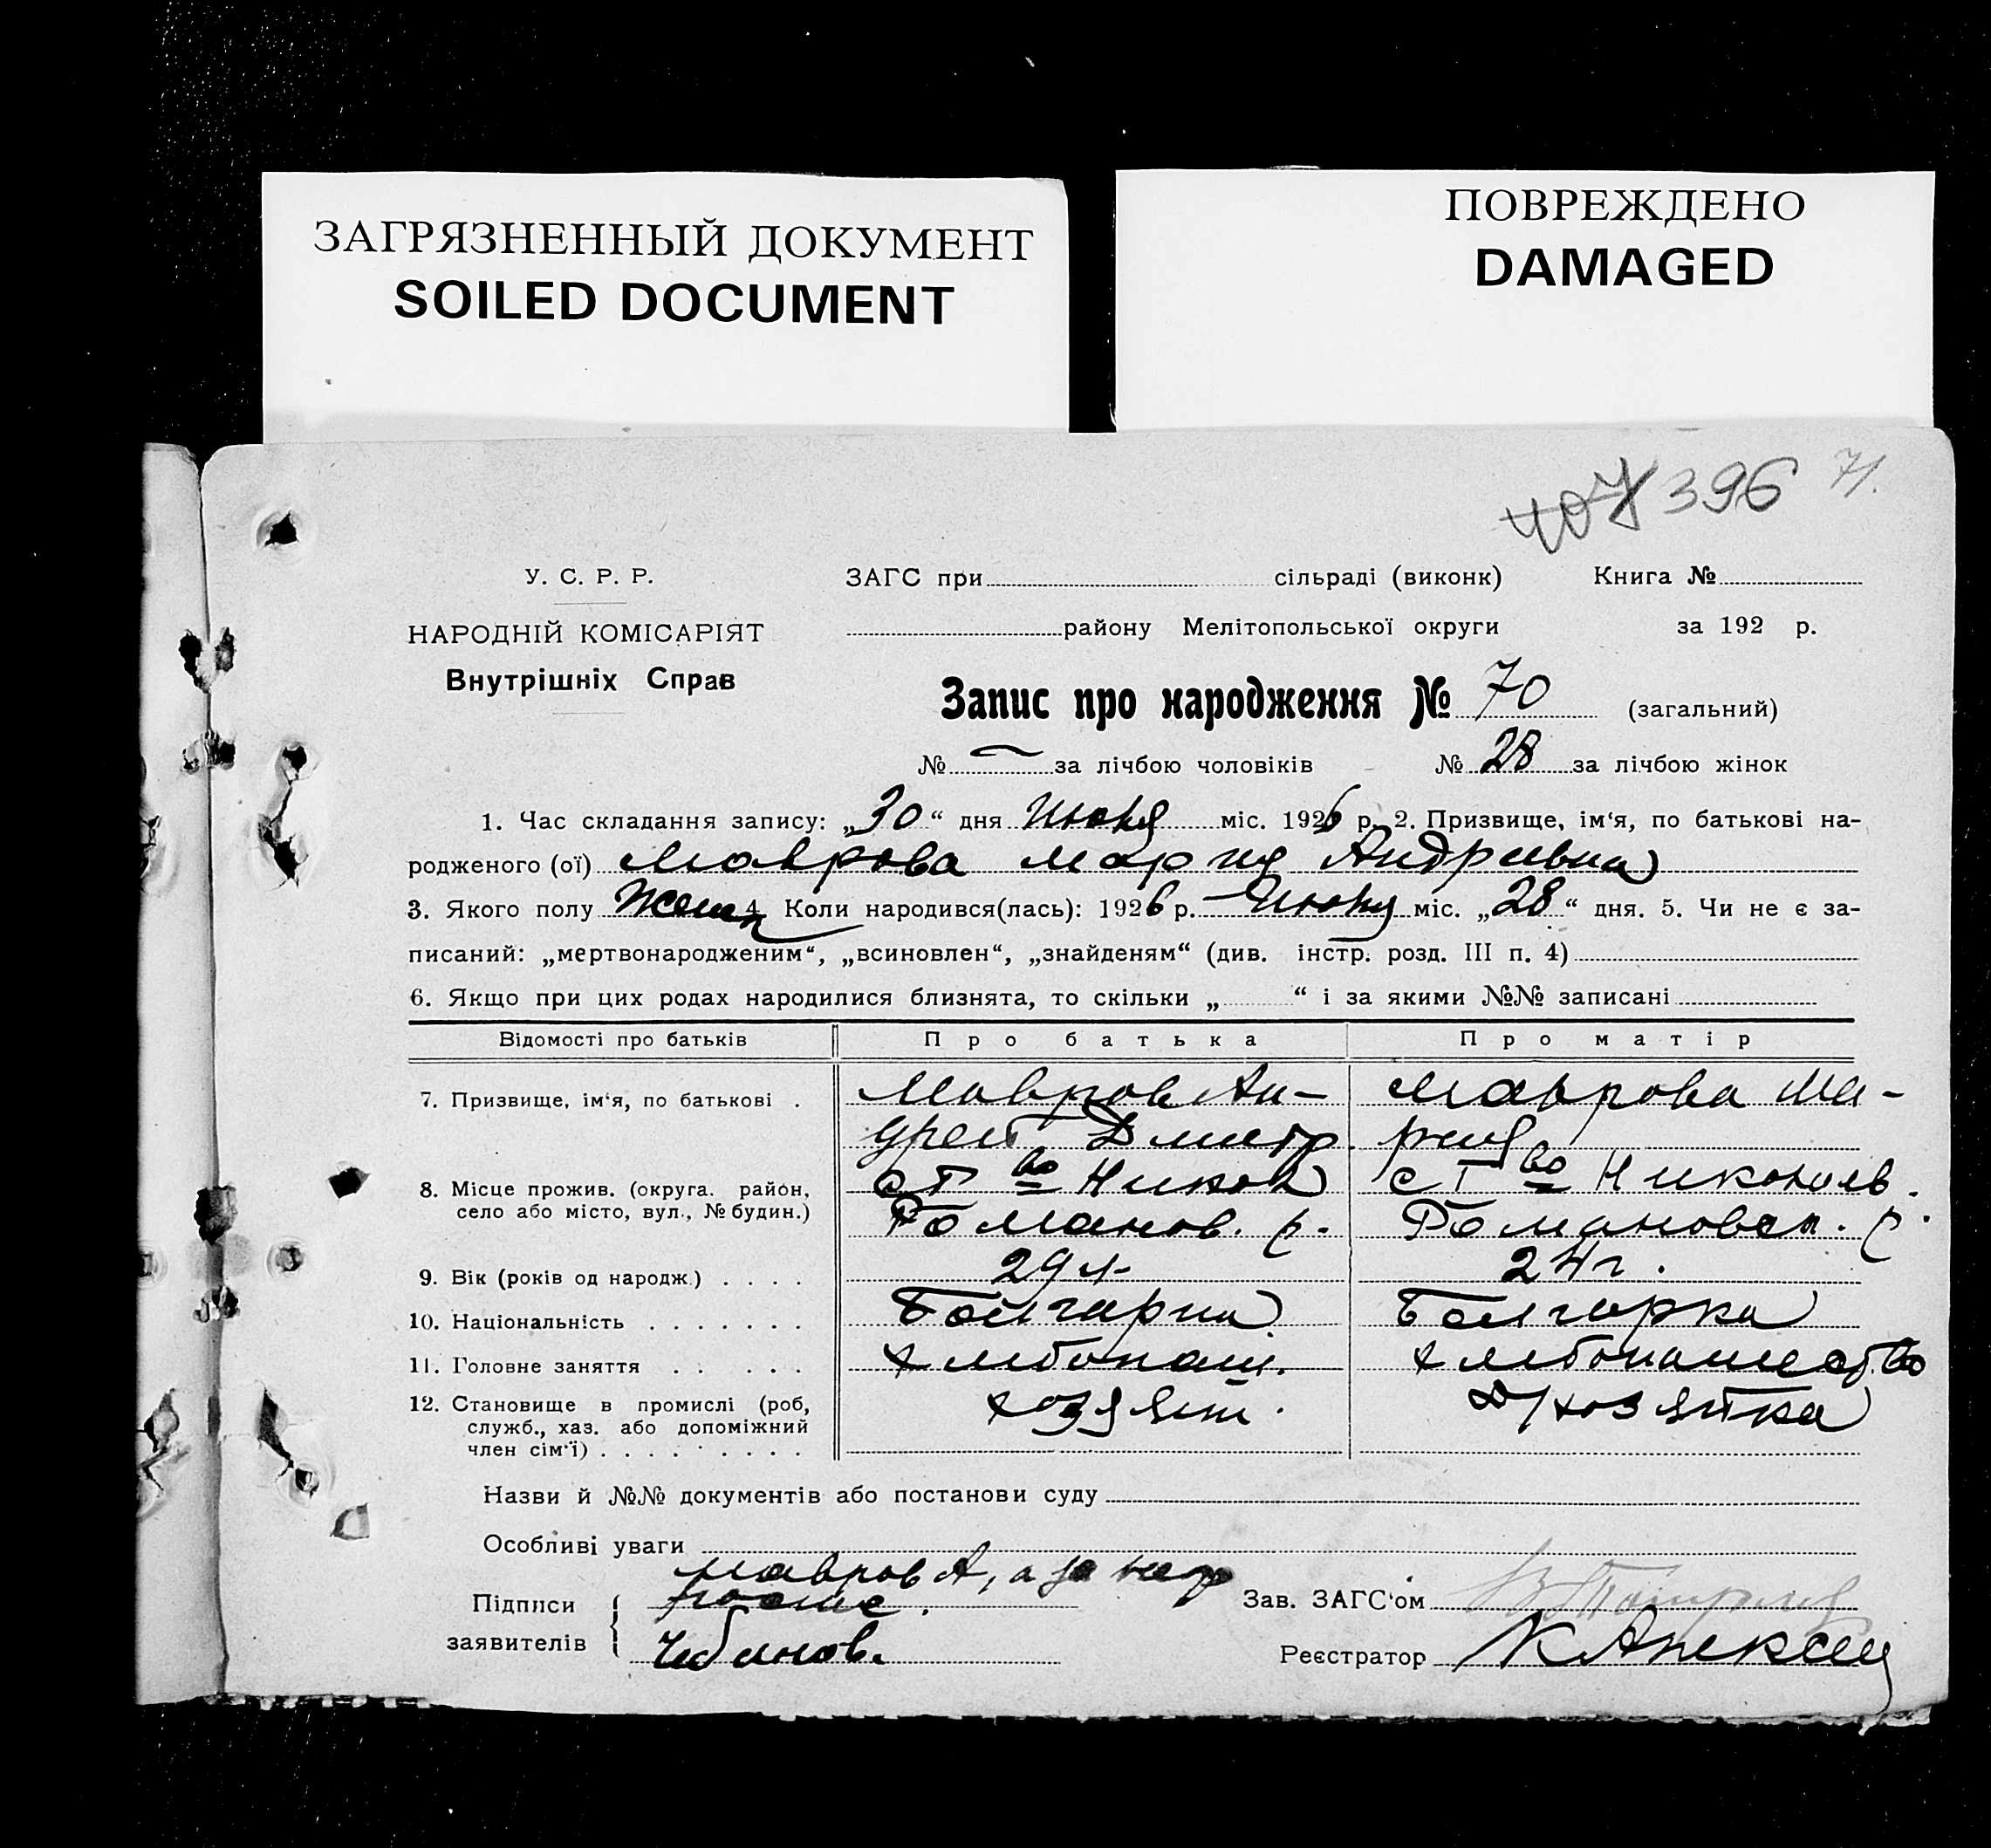 ЗАГРЯЗНЕННЫЙ ДОКУМЕНТ
SOILED DOCUMENT
ПОВРЕЖДЕНО
DAMAGED
407 396 71.
У. С. Р. Р.
НАРОДНІЙ КОМІСАРІЯТ
Внутрішніх Справ
ЗАГС при сільраді (виконк) Книга №
району Мелітопольської округи за 192 р.
Запис про народження № 70 (загальний)
№ — за лічбою чоловіків № 28 за лічбою жінок
1. Час складання запису: „30“ дня Июня міс. 1926 р. 2. Призвище, ім‘я, по батькові на-
родженого (ої) Маврова Мария Андреевна
3. Якого полу Женск 4. Коли народився(лась): 1926 р. Июня міс. „28“ дня. 5. Чи не є за-
писаний: „мертвонародженим“, „всиновлен“, „знайденям“ (див. інстр. розд. III п. 4)
6. Якщо при цих родах народилися близнята, то скільки „ “ і за якими №№ записані
Відомості про батьків Про батька Про матір
7. Призвище, ім‘я, по батькові . Мавров Ан- Маврова Ма-
дрей Дмитр. рия
8. Місце прожив. (округа. район, ст во Никол ст во Николаев.
село або місто, вул., № будин.) Романов. р. Романовск. р.
9. Вік (років од народж.) . . . . 29 л. 24 г.
10. Національність . . . . . . . Болгарин Болгарка
11. Головне заняття . . . . . Хлебопаш. Хлебопашество
12. Становище в промислі (роб, хозяин. Д/хозяйка
служб., хаз. або допоміжний
член сім‘ї) . . . . . . . . .
Назви й №№ документів або постанови суду
Особливі уваги
Мавров А, а за негр
Підписи роспис. Зав. ЗАГС‘ом
заявителів Чебанов. Реєстратор К Алексеев